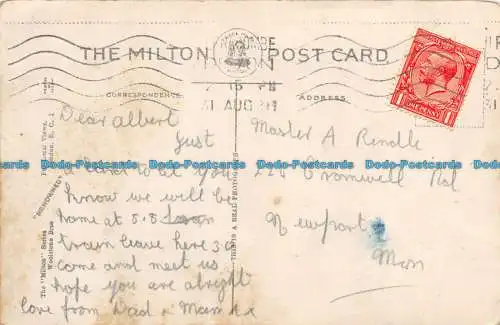 THE MILTON POST CARD
CORRESPONDENCE
ADDRESS
31 AUG
ONE PENNY
Dear Albert
Just
a line to let you
know we will be
home at 5.5
train leave here 3.0
come and meet us
hope you are alright
love from Dad & Mam xx
Master A Rendle
Cromwell Rd
Newport
Mon
THIS IS A REAL PHOTOGRAPH
The "Milton" Series
Woolstone Bros
"RENOWNED"
Dodo-Postcards Dodo-Postcards Dodo-Postcards Dodo-Postcards Dodo-Postcards